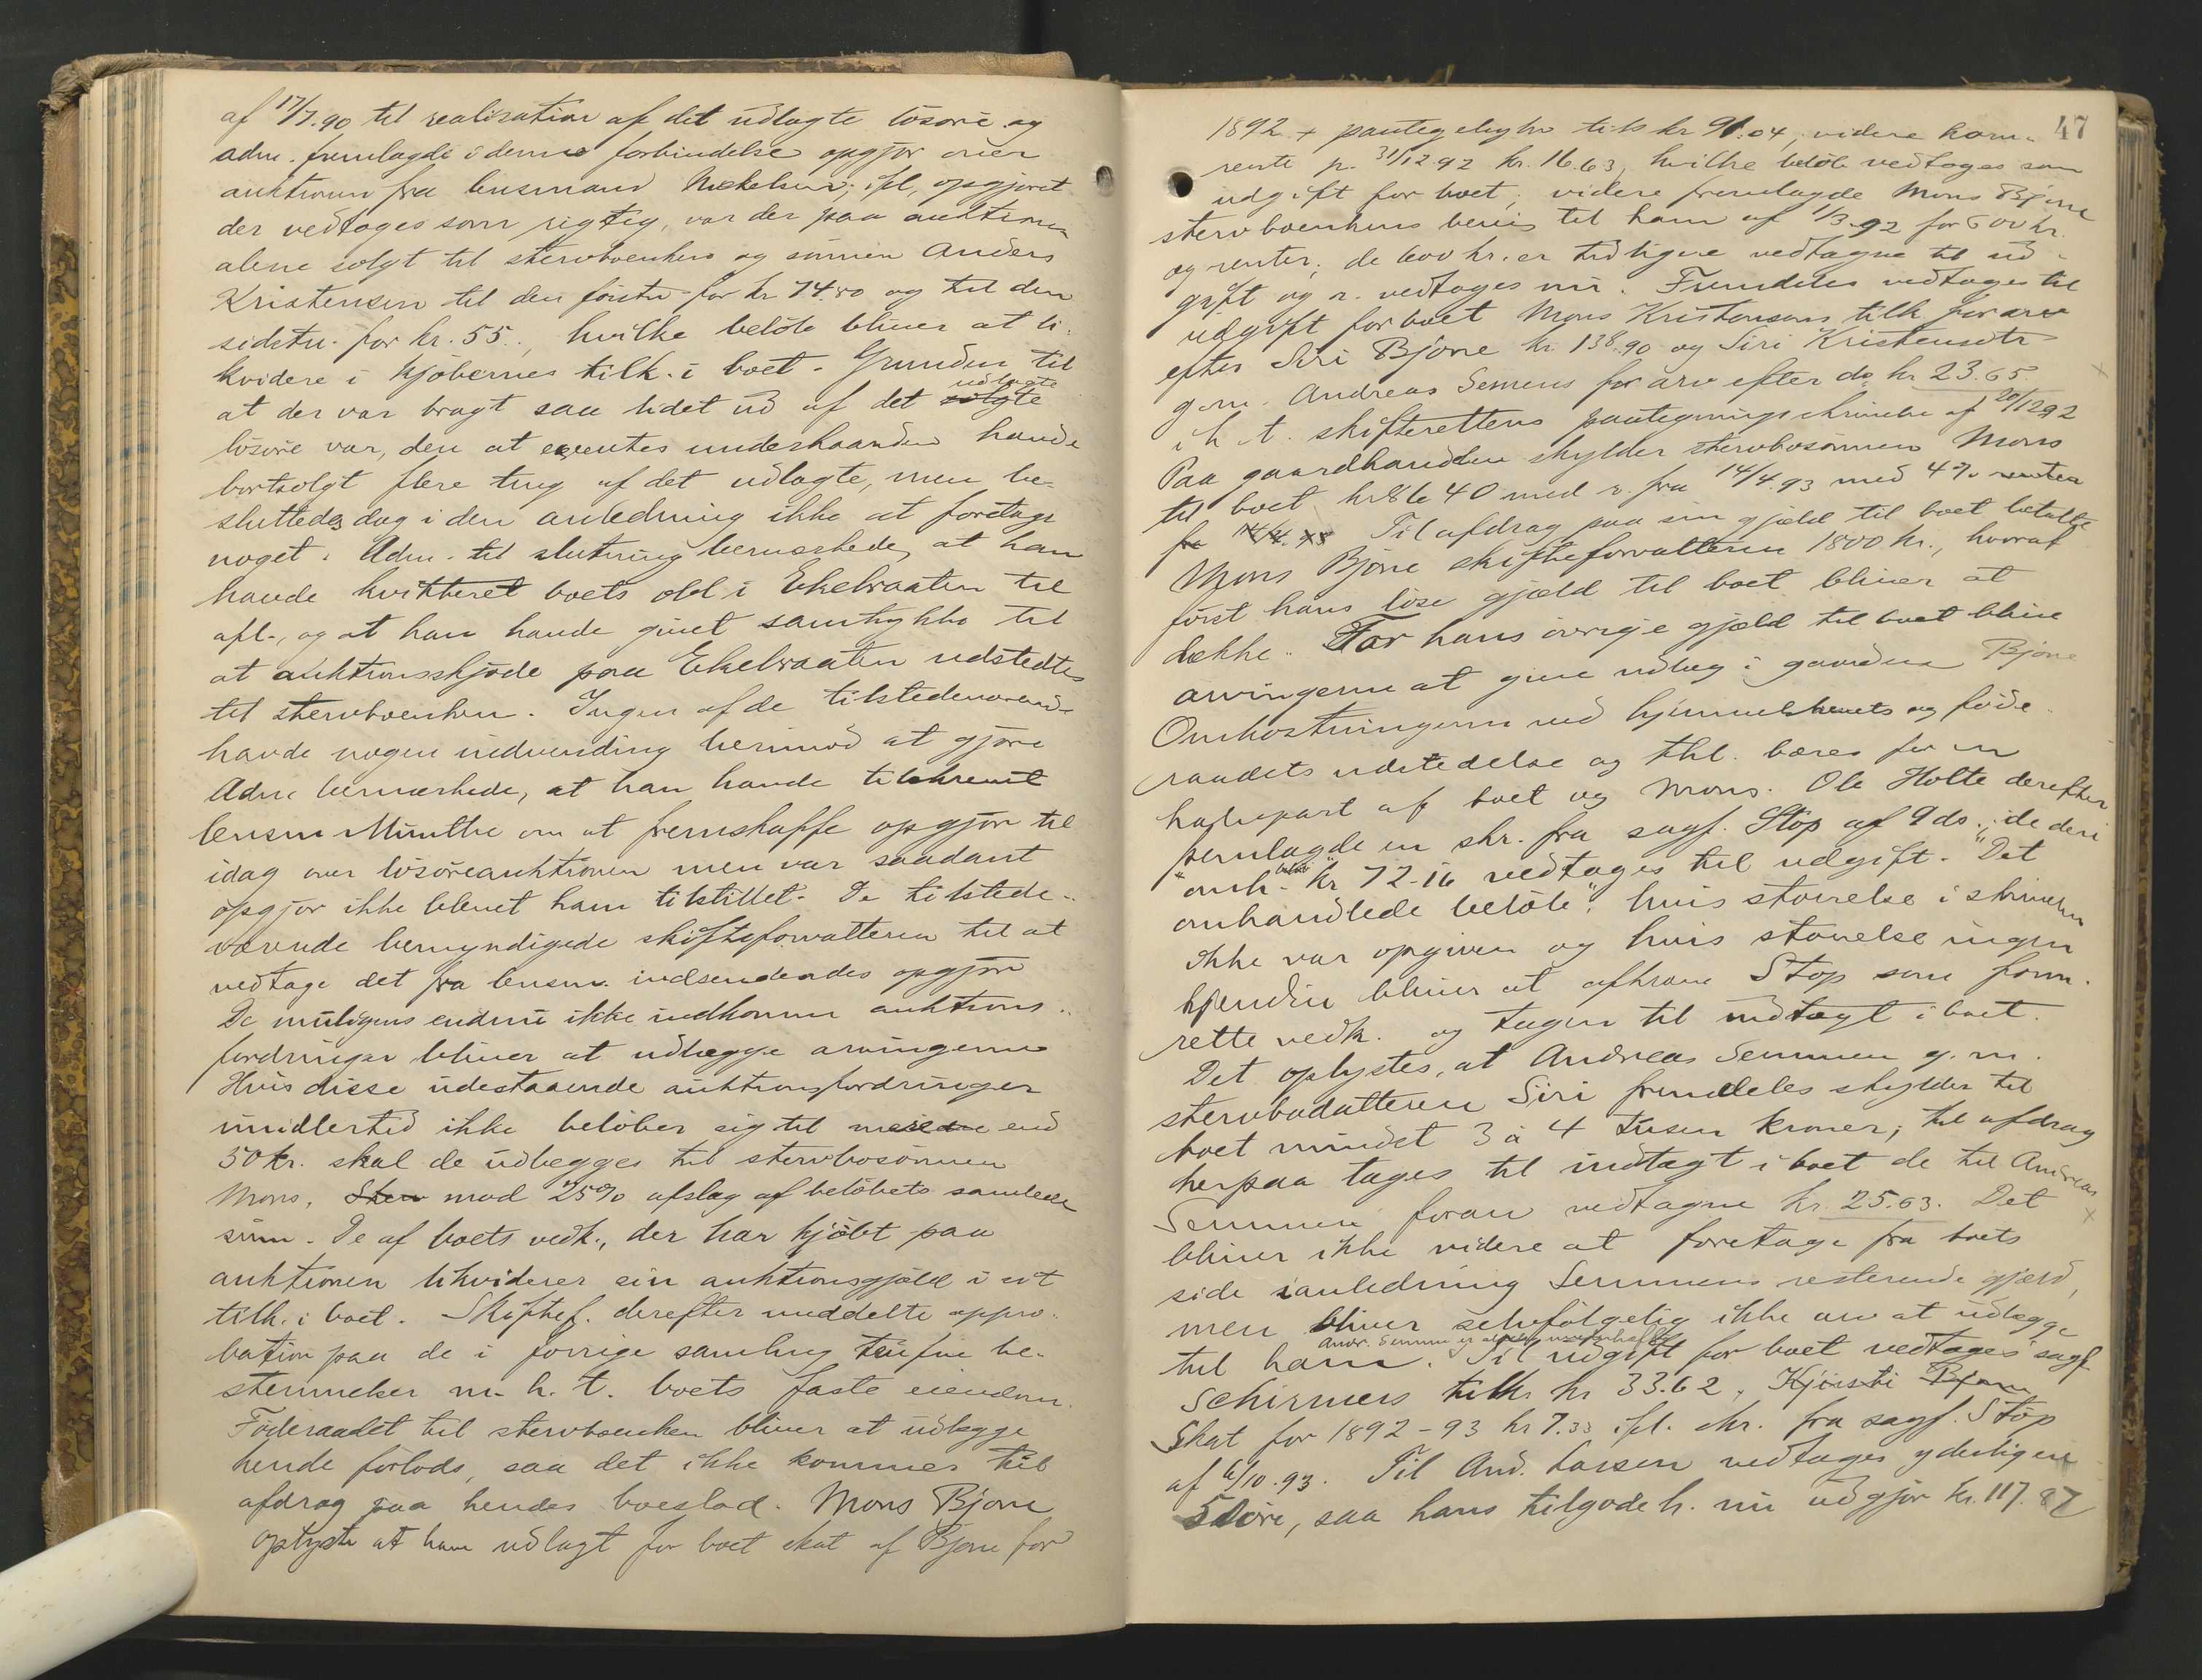 af 17/7.90 til realisation af det udlagte løsøre og
adm. fremlagde i denne forbindelse opgjør over
auktionen fra lensmand ifl. opgjøret
der vedtoges som rigtig, var der paa auktionen
alene solgt til stervboenken og sønnen Anders
Kristensen til den første for kr 74.80 og til den
sidste for kr. 55., hvilke beløb bliver at li-
kvidere i kjøbernes tilk. i boet. Grunden til
at der var bragt saa lidet ud af det solgte udlagte
løsøre var, den at underhaanden havde
bortsolgt flere ting af det udlagte, men be-
sluttedes dog i den anledning ikke at foretage
noget. Adm. til slutning bemærkede, at han
havde kvitteret boets obl. i Ekelraaten til
afl., og at han havde givet samtykke til
at auktionsskjøde paa Ekelraaten udstedtes
til stervboenken. Ingen af de tilstedeværende
havde nogen indvending herimod at gjøre
Adm. bemærkede, at han havde tilskrevet
lensm Munthe om at fremskaffe opgjør til
idag over løsøreauktionen men var saadant
opgjør ikke blevet ham tilstillet. De tilstede-
værende bemyndigede skifteforvalteren til at
vedtage det fra lensm. indsendendes opgjør
De muligens endnu ikke indkomne auktions-
fordringer bliver at udlægge arvingerne
Hvis disse udestaaende auktionsfordringer
imidlertid ikke beløber sig til mere end
50 kr. skal de udlægges til stervbosønnen
Mons, mod 25% afslag af beløbets samlede
sum. De af boets vedk., der har kjøbt paa
auktionen likviderer sin auktionsgjæld i sit
tilk. i boet. Skiftef. derefter meddelte appro-
bation paa de i forrige samling trufne be-
stemmelser m. h. t. boets faste eiendom.
Føderaadet til stervboenken bliver at udlægge
hende forlods, saa det ikke kommer til
afdrag paa hendes boeslod. Mons Bjøre
oplyste at have udlagt for boet skat af Bjøre for
47
1892 + pantegelyhr tils kr 91.04, videre kom-
rente pr. 31/12 92 kr. 16.63, hvilke beløb vedtages som
udgift for boet, videre fremlagde Mons Bjøre
stervboenkens bevis til ham af 1/3.92 for 600 kr.
og renter; de 600 kr. er tidligere vedtagne til ud-
gift og r. vedtages nu. Fremdeles vedtages til
udgift for boet Mons Kristensens tilk for arv
efter Siri Bjøre kr 138.90 og Siri Kristensdtr
g.m. Andreas Semens for arv efter do kr 23.65
i h. t. skifterettens paategningsskrivelse af 20/12 92
Paa gaardhandelen skylder stervbosønnen Mons
til boet kr 8640 med r. fra 14/4.93 med 4% renter
fra 14/4.93 Til afdrag paa sin gjæld til boet betalte
Mons Bjøre skifteforvalteren 1800 kr., hvoraf
først hans løse gjæld til boet bliver at
dække. For hans øvrige gjæld til boet blive
arvingerne at give udlæg i gaarden Bjøre
Omkostningerne ved hjemmelsbrevets og føde-
raadets udstedelse og thl. bæres for en
halvpart af boet og Mons. Ole Holte derefter
fremlagde en skr. fra sagf. Støp af 9 ds.; de deri
"omh. beløb" kr 72.16 vedtages til udgift. "Det
omhandlede beløb", hvis størrelse i skrivelsen
ikke var opgiven og hvis størrelse ingen
kjender bliver at afkræve Støp som form.
rette vedk. og tages til indtægt i boet.
Det oplystes, at Andreas Semmen g. m.
stervbodatteren Siri fremdeles skylder til
boet mindst 3 à 4 tusen kroner; til afdrag
herpaa tages til indtægt i boet de til Andreas
Semmen foran vedtagne kr. 25.63. Det
bliver ikke videre at foretage fra boets
side i anledning Semmens resterende gjæld,
men bliver selvfølgelig ikke arv at udlægge
Andr. Semmen er
til ham. Til udgift for boet vedtages sagf.
Schirmers tilk kr 33.62, Kjersti Bjøre
Skat for 1892-93 kr 7.33 ifl. skr. fra sagf. Støp
af 6/10.93. Til And. Larsen vedtages yderligere
50 øre, saa hans tilgodeh. nu udgjør kr. 117.87